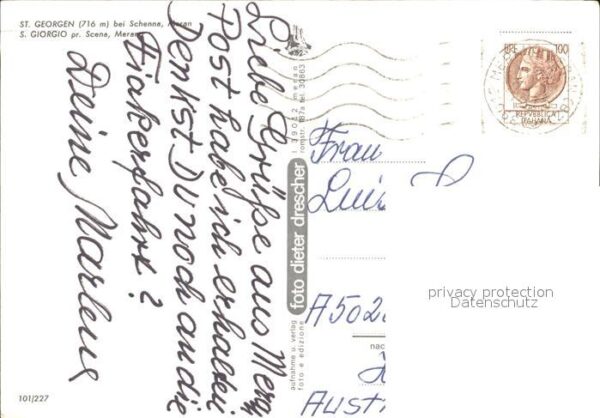 ST. GEORGEN (716 m) bei Schenna, Meran
S. GIORGIO pr. Scena, Meran
Liebe Grüße aus Meran
Post habe ich erhalten
Denkst Du noch an die
Fiakerfahrt?
Deine Marlens
foto dieter drescher
aufnahme u. verlag
foto e edizione
I 39012 meran
romstr. 187a tel. 30863
LIRE 100
REPVBBLICA
ITALIANA
Frau
Luiz
A502
nac
Aust
privacy protection
Datenschutz
101/227